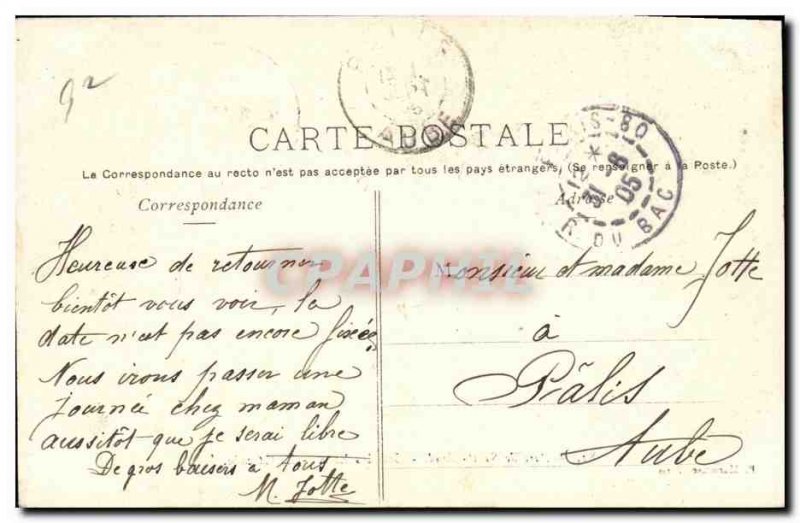 92
CARTE POSTALE
La Correspondance au recto n'est pas acceptée par tous les pays étrangers. (Se renseigner à la Poste.)
Correspondance
Adresse
PARIS-80
31-8
05
R. DU BAC
AUBE
Heureuse de retourner
bientôt vous voir, la
date n'est pas encore fixée
Nous irons passer une
journée chez maman
aussitôt que je serai libre
De gros baisers à tous
M. Jotte
Monsieur et madame Jotte
à
Pâlis
Aube
CPAPHIL